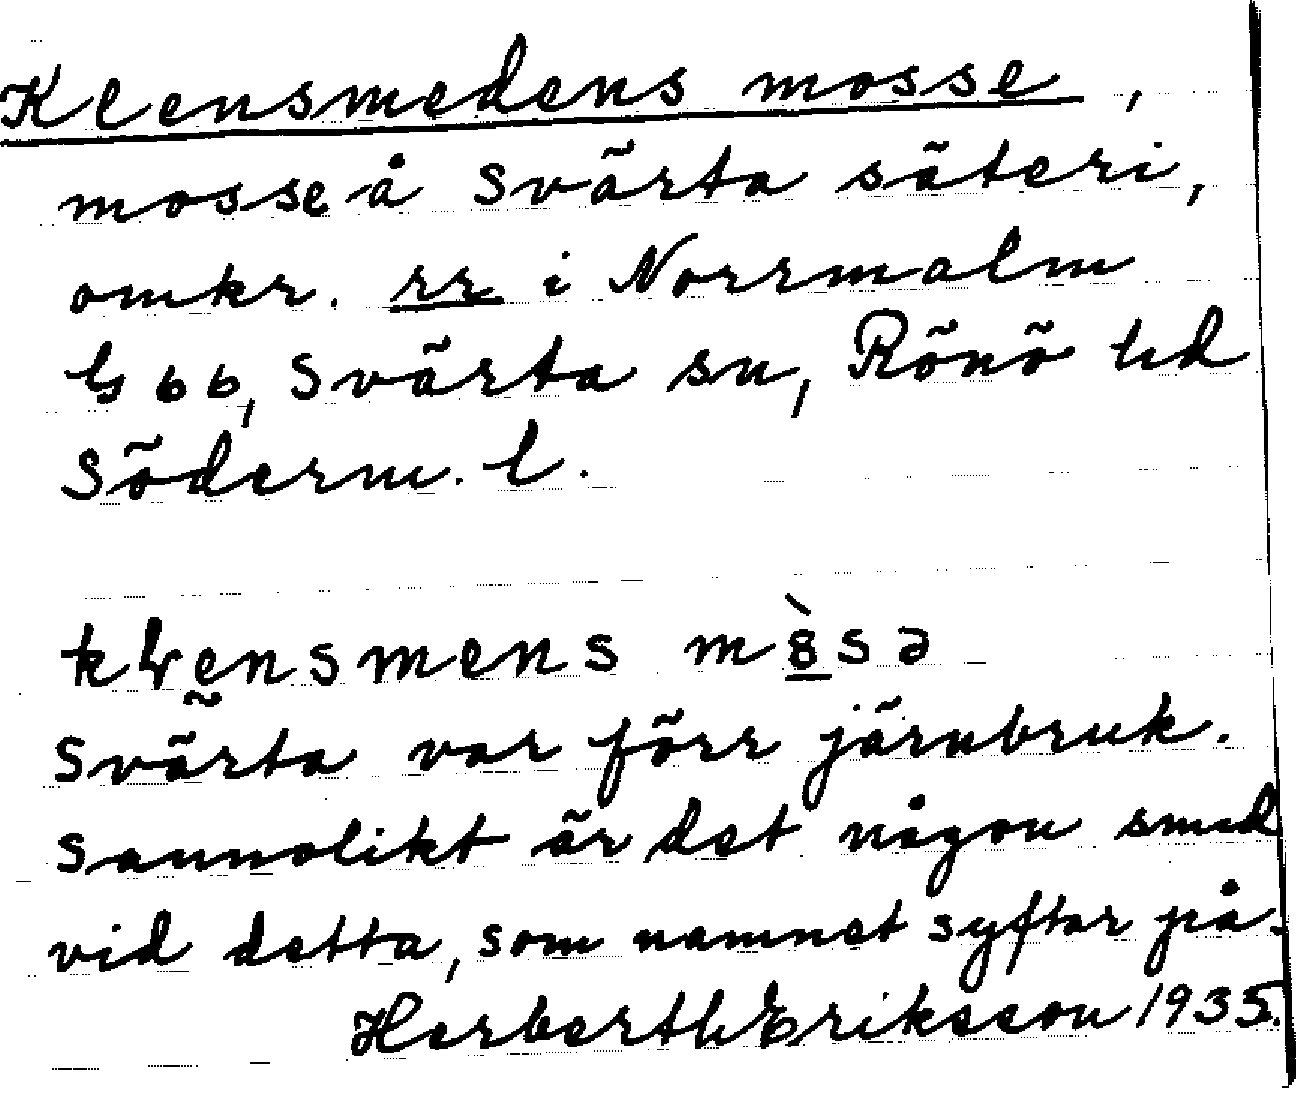 Klensmedens mosse,
mosse å Svärta säteri,
omkr. rr i Norrmalm
G 66, Svärta sn, Rönö hd
Söderm. l.
Svärta var förr järnbruk.
Sannolikt är det någon smed
vid detta, som namnet syftar på.
Herberth Eriksson 1935.